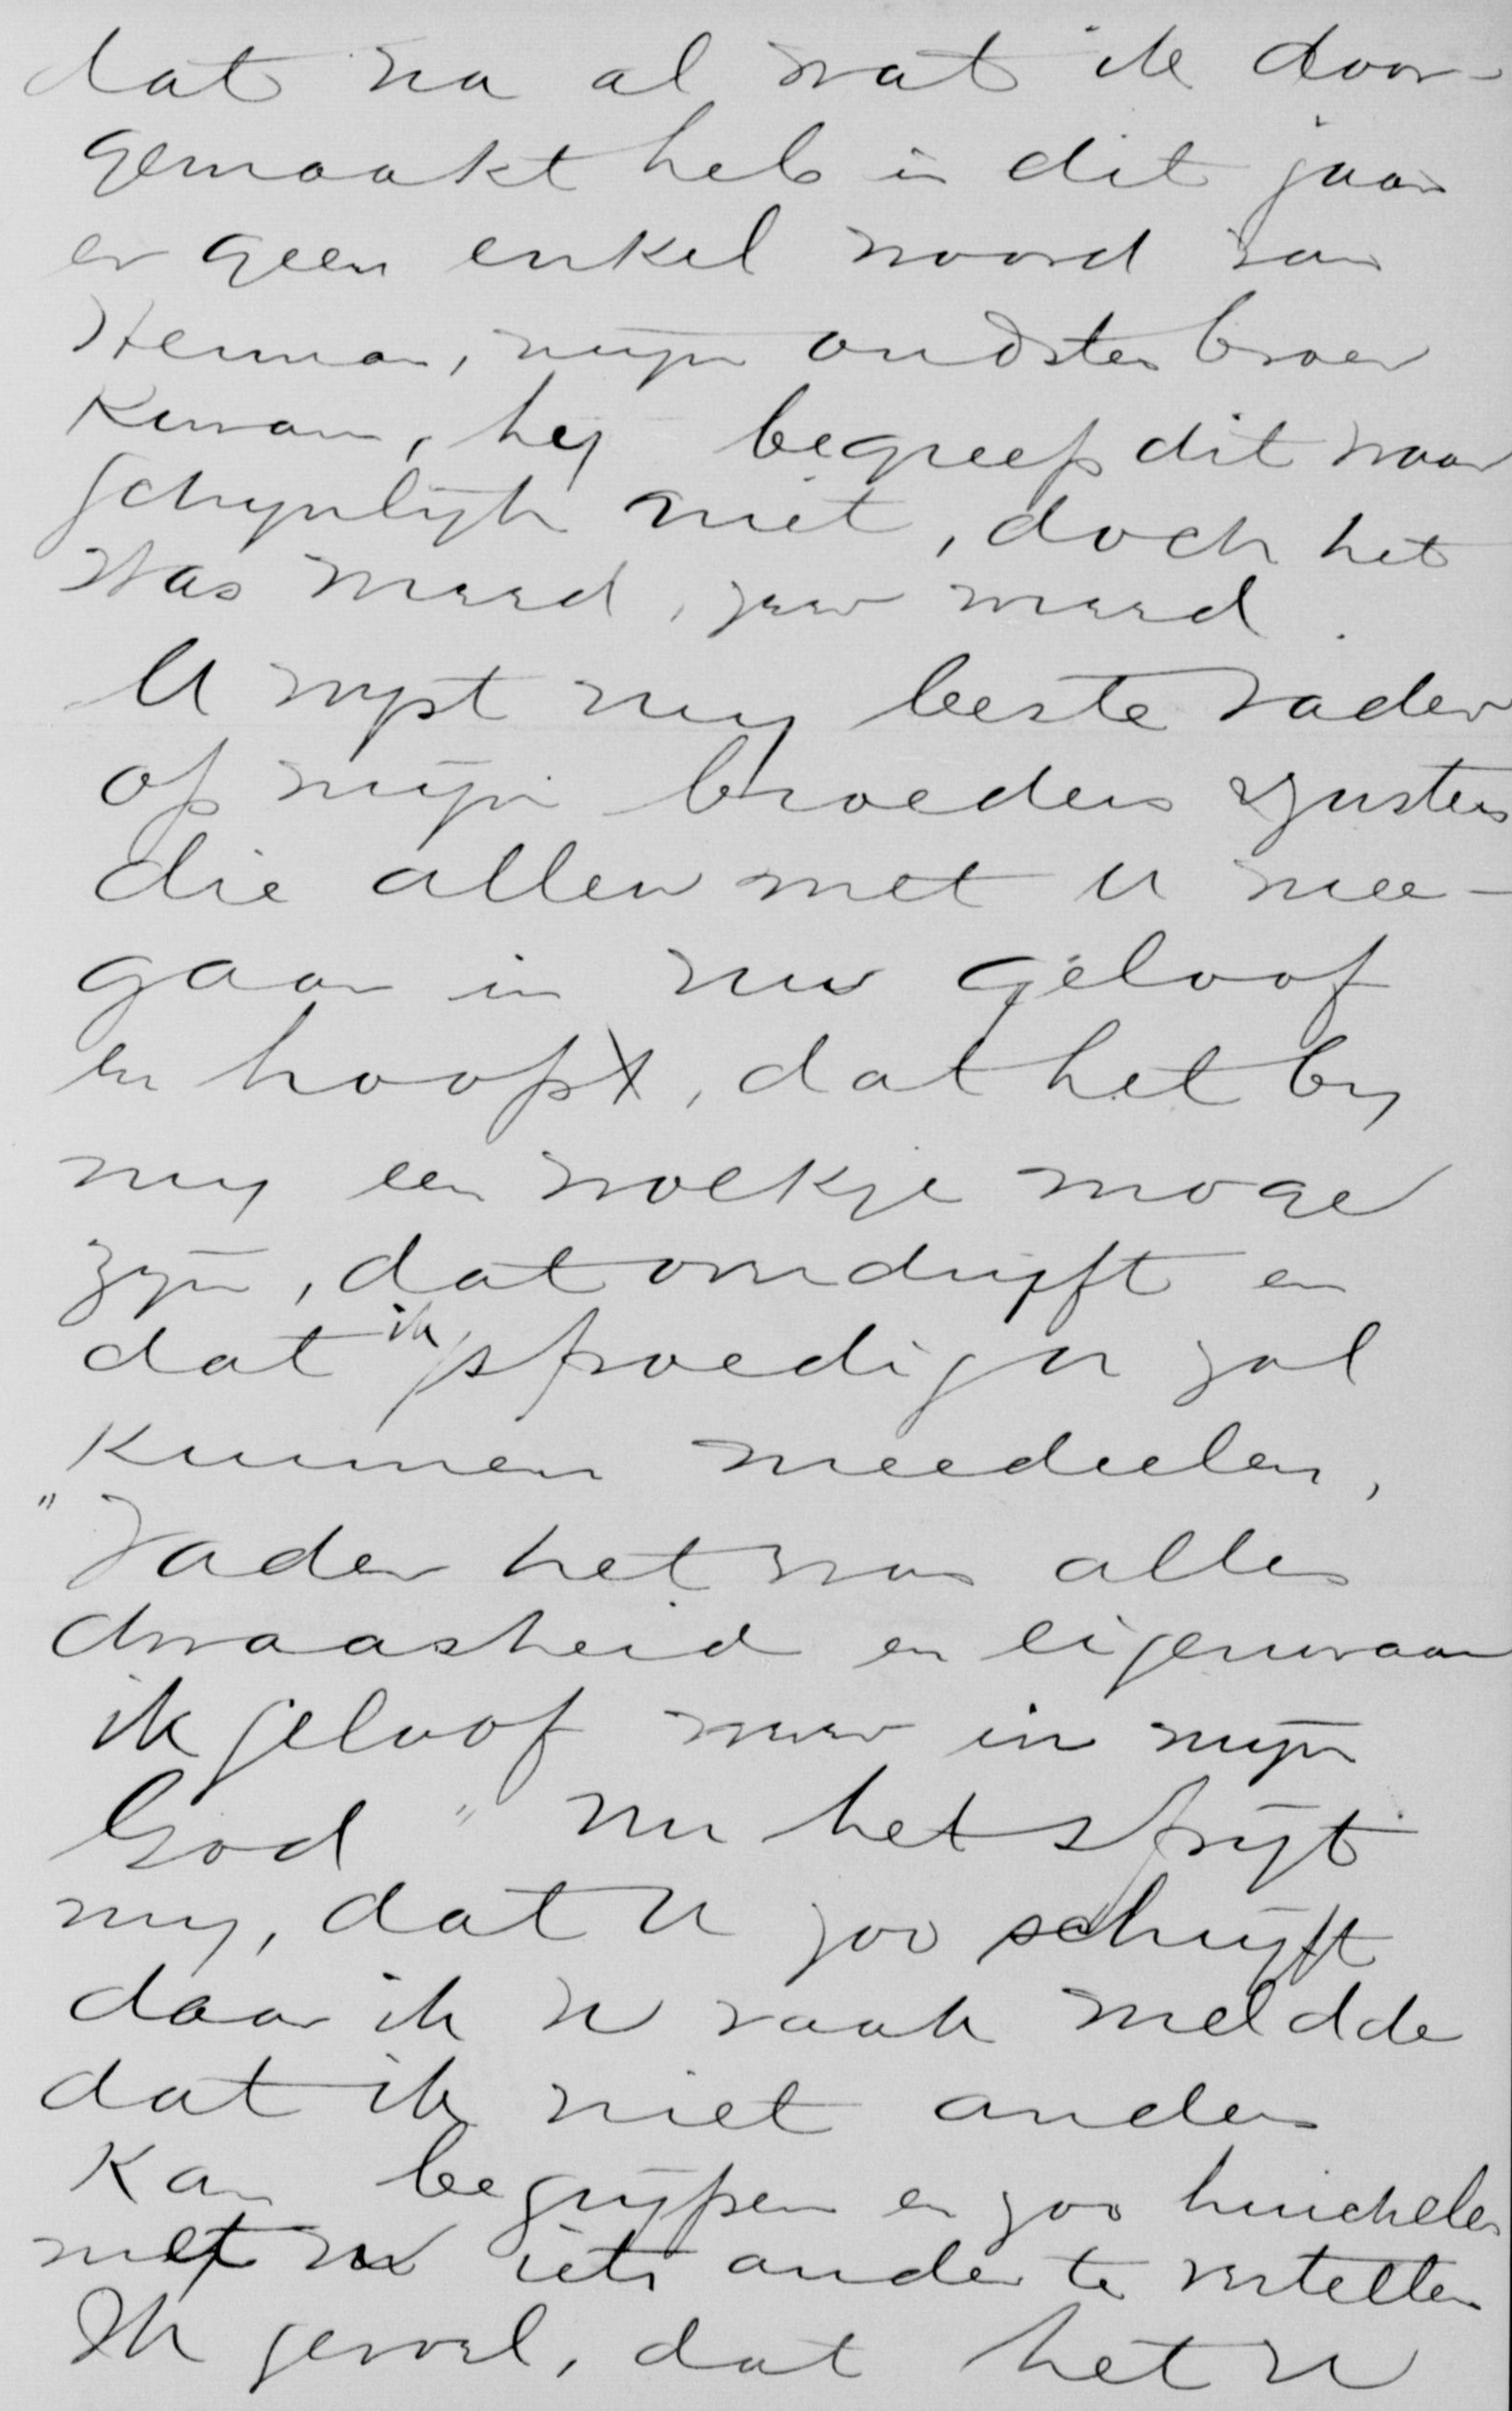 dat na al wat ik door-
gemaakt heb in dit jaar
er geen enkel woord van
Herman, mijn oudsten broer
kwam, hij begreep dit waar
schijnlijk niet, doch het
was wreed, zeer wreed.
U wijst mij beste vader
op mijn broeders zusters
die allen met u mee-
gaan in uw geloof
en hoopt, dat het bij
mij een wolkje moge
zijn, dat overdrijft en
dat ik spoedig u zal
kunnen meedeelen,
"Vader het was alles
dwaasheid en eigenwaan
ik geloof weer in mijn
God" nu het spijt
mij, dat U zoo schrijft
daar ik u vaak meldde
dat ik niet anders
kan begrijpen en zou huichelen
met u iets anders te vertellen
Ik gevoel, dat het U